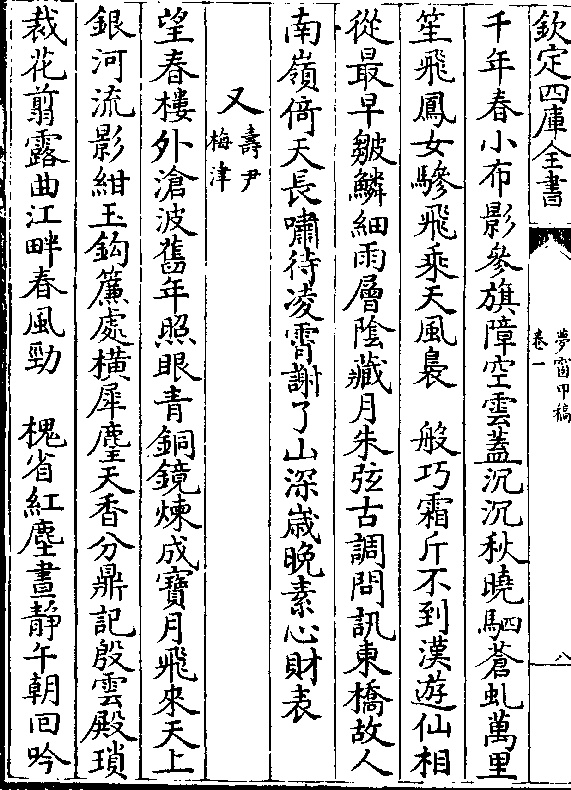 欽定四庫全書
夢窗甲稿
卷一
八
千年春小布影參旗障空雲蓋沉沉秋曉駟蒼虬萬里
笙飛鳳女驂飛乘天風裊　般巧霜斤不到漢遊仙相
從最早皴鱗細雨層陰藏月朱弦古調問訊東橋故人
南嶺倚天長嘯待凌霄謝了山深歲晚素心財表
又壽尹梅津
望春樓外滄波舊年照眼青銅鏡煉成寶月飛來天上
銀河流影紺玉鈎簾處橫犀麈天香分鼎記殷雲殿瑣
裁花翦露曲江畔春風勁　槐省紅塵晝靜午朝回吟